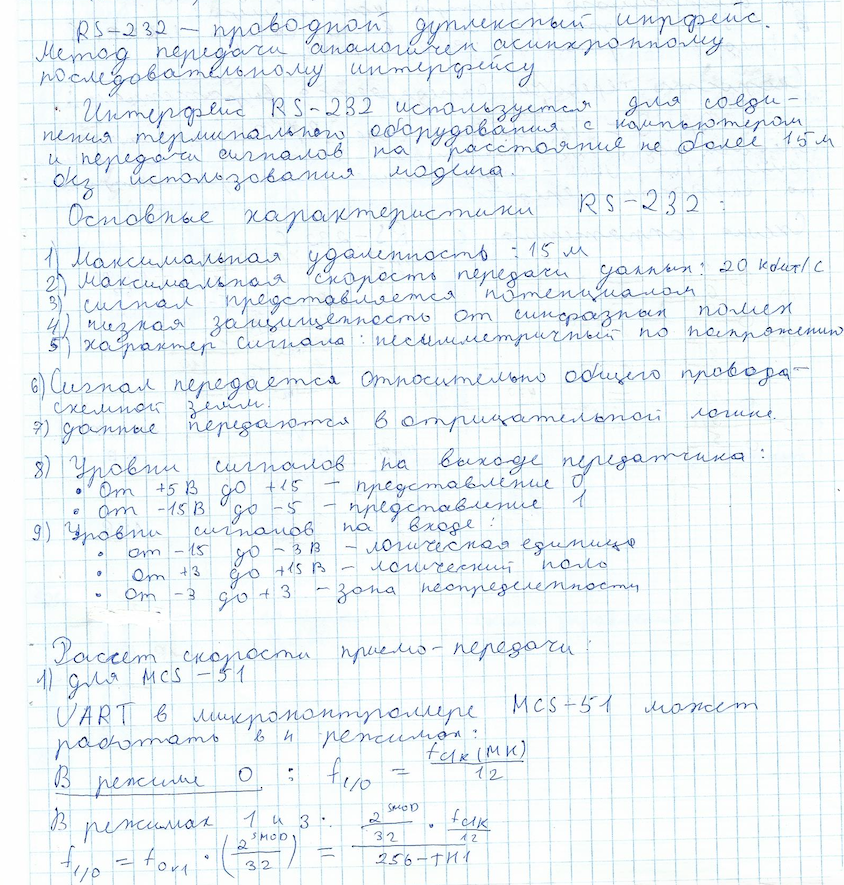 RS-232 – проводной дуплексный инрфейс.
Метод передачи аналогичен асинхронному
последовательному интерфейсу
Интерфейс RS-232 используется для соеди-
нения терминального оборудования с компьютером
и передачи сигналов на расстояние не более 15 м
без использования модема.
Основные характеристики RS-232 :
1) Максимальная удаленность : 15 м
2) Максимальная скорость передачи данных : 20 кбит/с
3) сигнал представляется потенциалом
4) низкая защищенность от синфазных помех
5) характер сигнала : несимметричный по напряжению
6) Сигнал передается относительно общего провода –
схемной земли.
7) данные передаются в отрицательной логике.
8) Уровни сигналов на выходе передатчика :
• от +5 В до +15 – представление 0
• от -15В до -5 – представление 1
9) Уровни сигналов на входе :
• от -15 до -3 В – логическая единица
• от +3 до +15 В – логический ноль
• от -3 до +3 – зона неопределенности
Рассет скорости приемо-передачи :
1) для MCS-51
UART в микроконтроллере MCS-51 может
работать в 4 режимах :
В режиме 0 : f_I/O = f_clk(МК) / 12
В режимах 1 и 3 :
f_I/O = f_ov1 · (2^SMOD / 32) = (2^SMOD / 32 · f_clk / 12) / (256-TH1)